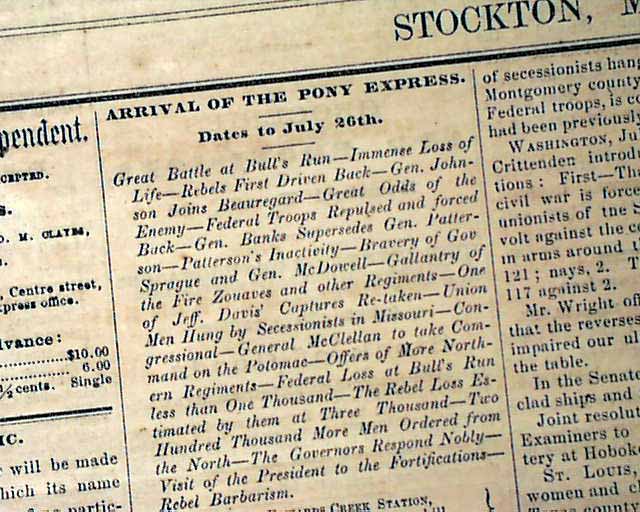 STOCKTON,
pendent.
CEPTED.
S.
D. M. CLAYES,
Centre street,
xpress office.
dvance:
$10.00
6.00
½ cents. Single
IC.
will be made
hich its name
ARRIVAL OF THE PONY EXPRESS.
Dates to July 26th.
Great Battle at Bull's Run—Immense Loss of
Life—Rebels First Driven Back—Gen. John-
son Joins Beauregard—Great Odds of the
Enemy—Federal Troops Repulsed and forced
Back—Gen. Banks Supersedes Gen. Patter-
son—Patterson's Inactivity—Bravery of Gov
Sprague and Gen. McDowell—Gallantry of
the Fire Zouaves and other Regiments—One
of Jeff. Davis' Captures Re-taken—Union
Men Hung by Secessionists in Missouri—Con-
gressional—General McClellan to take Com-
mand on the Potomac—Offers of More North-
ern Regiments—Federal Loss at Bull's Run
less than One Thousand—The Rebel Loss Es-
timated by them at Three Thousand—Two
Hundred Thousand More Men Ordered from
the North—The Governors Respond Nobly—
Visit of the President to the Fortifications—
Rebel Barbarism.
CREEK STATION,
of secessionists hang
Montgomery county
Federal troops, is co
had been previously
WASHINGTON, Ju
Crittenden introdu
tions: First—Tha
civil war is force
unionists of the S
volt against the co
in arms around t
121; nays, 2. T
117 against 2.
Mr. Wright of
that the reverses
impaired our ul
the table.
In the Senate
clad ships and
Joint resolut
Examiners to
tery at Hoboke
ST. LOUIS,
women and c